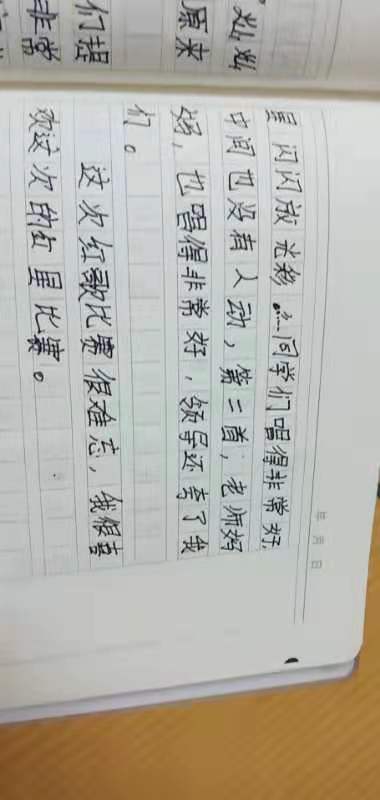 灿灿
原来
们想
非常
年 月 日
星闪闪放光彩……同学们唱得非常好,
中间也没有人动,第二首,老师妈
妈,也唱得非常好,领导还夸了我
们。
这次红歌比赛很难志,我很喜
欢这次的红星比赛。